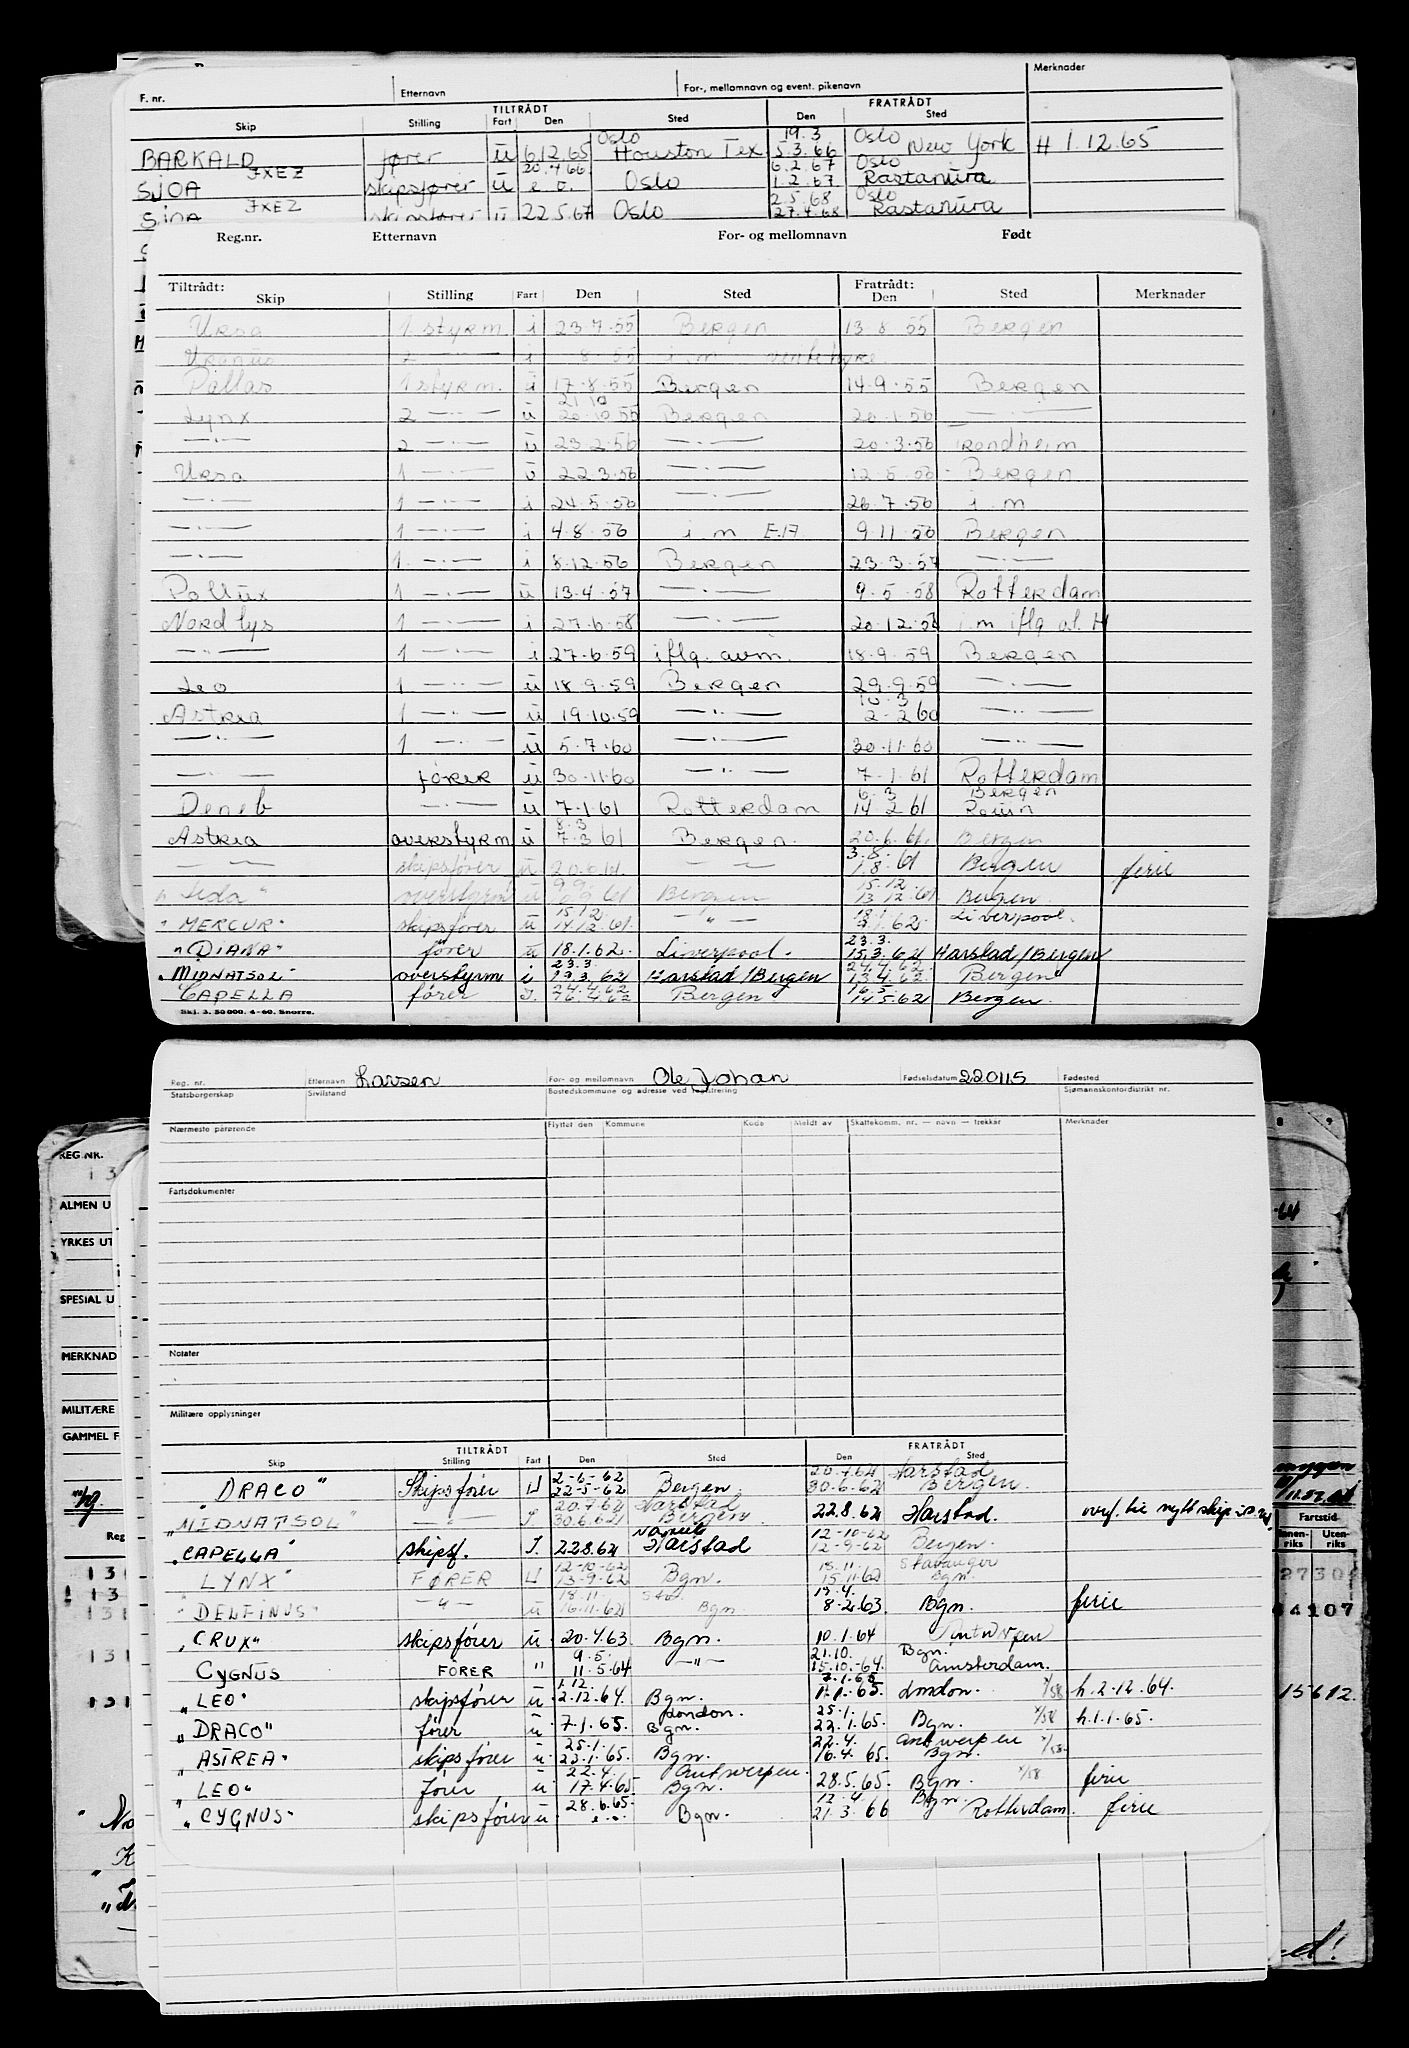 F. nr. Etternavn For-, mellomnavn og event. pikenavn Merknader
TILTRÅDT FRATRÅDT
Skip Stilling Fart Den Sted Den Sted
Oslo 19.3 Oslo
BARKALD fører u 6.12.65 Houston Tex 5.3.66 New York H 1.12.65
JXEZ 20.4.66 6.2.67 Oslo
SJOA skipsfører u e.o. Oslo 1.2.67 Rastanura
JXEZ 2.5.68 Oslo
SJOA skipsfører u 22.5.67 Oslo 27.4.68 Rastanura
Reg.nr. Etternavn For- og mellomnavn Født
Tiltrådt: Fratrådt:
Skip Stilling Fart Den Sted Den Sted Merknader
Ursa 1 styrm i 23.7.55 Bergen 13.8.55 Bergen
Uranus 2 —"— i 8.55 i.m ventehyre
Pallas 1 styrm. u 17.8.55 Bergen 14.9.55 Bergen
21.10
Lynx 2 —"— u 20.10.55 Bergen 20.1.56 —"—
—"— 2 —"— u 23.2.56 —"— 20.3.56 Trondheim
Ursa 1 —"— u 22.3.56 —"— 12.5.56 Bergen
—"— 1 —"— i 24.5.56 —"— 26.7.56 i.m
—"— 1 —"— i 4.8.56 i m 9.11.56 Bergen
—"— 1 —"— i 8.12.56 Bergen 23.3.57 —"—
Pollux 1 —"— u 13.4.57 —"— 9.5.58 Rotterdam
Nordlys 1 —"— i 27.6.58 —"— 20.12.58 i.m iflg al. H
—"— 1 —"— i 27.6.59 iflg. avm. 18.9.59 Bergen
Leo 1 —"— u 18.9.59 Bergen 29.9.59 —"—
10.3
Astrea 1 —"— u 19.10.59 —"— 2-2 60 —"—
—"— 1 —"— u 5.7.60 —"— 30.11.60 —"—
—"— fører u 30.11.60 —"— 7.1.61 Rotterdam
6.3 Bergen
Deneb —"— u 7.1.61 Rotterdam 14.2.61 Rouen
8.3
Astrea overstyrm u 7.3.61 Bergen. 20.6.61. Bergen
3.8.
— " — skipsfører u 20.6.61 — " — 1.8.61 Bergen ferie
9.9 15.12
"Leda" overstyrm u 61 Bergen 13.12.61 Bergen
15.12 18.1
"MERCUR" skipsfører u 14.12.61. — " — 62. Liverpool.
23.3.
"DIANA" fører u 18.1.62. Liverpool. 15.3.62 Harstad/Bergen
23.3 24.4.62.
"MIDNATSOL" overstyrm i 19.3.62 Harstad/Bergen 13.4.62 Bergen
24.4.62 16.5.
CAPELLA fører I. 16.4.62 Bergen 14.5.62 Bergen.
Skj. 3. 50 000. 4-60. Snorre.
Reg. nr. Etternavn Larsen For- og mellomnavn Ole Johan Fødselsdatum 220115 Fødested
Statsborgerskap Sivilstand Bostedskommune og adresse ved registrering Sjømannskontordistrikt nr.
Nærmeste pårørende Flyttet den Kommune Kode Meldt av Skattekomm. nr. — navn — trekkår Merknader
Fartsdokumenter
Notater
Militære opplysninger
TILTRÅDT FRATRÅDT
Skip Stilling Fart Den Sted Den Sted
2-6-62 20.7.62 Harstad
"DRACO" Skipsfører U 22-5-62 Bergen. 30.6.62 Bergen.
20.7.62 Harstad
"MIDNATSOL" — " — I. 30.6.62 Bergen. 22.8.62 Harstad. overf. til nytt skip
12-10-62
"CAPELLA" skipsf. I. 22.8.62 Harstad 12-9-62 Bergen.
12-10-62 18.11. Stavanger
LYNX" FØRER U 13-9-62 Bgn. 15.11.62 Bgn.
18.11 19.4.
"DELFINUS" — " — u 16.11.62 Bgn. 8.2.63 Bgn. ferie
"CRUX" skipsfører u 20.4.63 Bgn. 10.1.64 Antwerpen
9.5. 21.10. Bgn.
CYGNUS FØRER " 11.5.64 — " — 15.10.-64. Amsterdam.
1.12. 7.1.65
"LEO" skipsfører u 2.12.64. Bgn. 1.1.65. London. 1/58 h. 2.12.64.
London. 25.1.
"DRACO" fører u 7.1.65. Bgn. 22.1.65. Bgn. 1/58 h. 1.1.65.
25.1. 22.4. Antwerpen
"ASTREA" skipsfører u 23.1.65. Bgn. 16.4.65. Bgn. 1/58.
22.4. Antwerpen.
"LEO" fører u 17.4.65 Bgn. 28.5.65. Bgn. 1/58 ferie
28.6.65. 12.4. Bgn.
"CYGNUS" skipsfører u e.o. Bgn. 21.3.66 Rotterdam. ferie
REG. NR.
13
ALMEN U
YRKES UT
SPESIAL U
MERKNAD
MILITÆRE
GAMMEL F.
Reg
131
131
131
131
131
8 9
Fartstid
Innen-riks Uten-riks
2730
44107
15612.